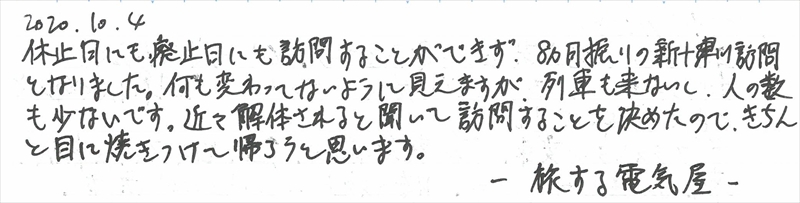 2020.10.4
休止日にも廃止日にも訪問することができず、8ヵ月振りの新十津川訪問
となりました。何も変わってないように見えますが、列車も来ないし、人の数
も少ないです。近々解体されると聞いて訪問することを決めたので、きちん
と目に焼きつけて帰ろうと思います。
－ 旅する電気屋 －